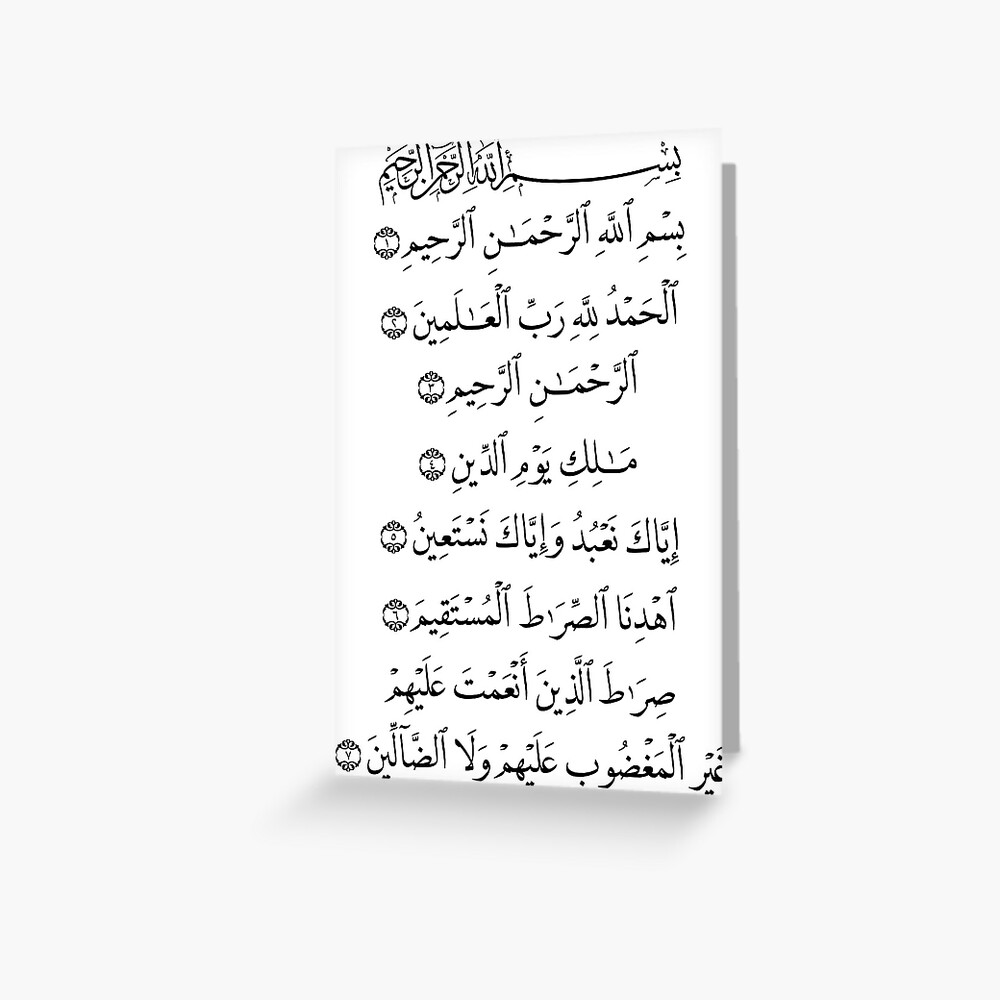 بِسْمِ ٱللَّهِ ٱلرَّحْمَـٰنِ ٱلرَّحِيمِ
بِسْمِ ٱللَّهِ ٱلرَّحْمَـٰنِ ٱلرَّحِيمِ ١
ٱلْحَمْدُ لِلَّهِ رَبِّ ٱلْعَـٰلَمِينَ ٢
ٱلرَّحْمَـٰنِ ٱلرَّحِيمِ ٣
مَـٰلِكِ يَوْمِ ٱلدِّينِ ٤
إِيَّاكَ نَعْبُدُ وَإِيَّاكَ نَسْتَعِينُ ٥
ٱهْدِنَا ٱلصِّرَٰطَ ٱلْمُسْتَقِيمَ ٦
صِرَٰطَ ٱلَّذِينَ أَنْعَمْتَ عَلَيْهِمْ
غَيْرِ ٱلْمَغْضُوبِ عَلَيْهِمْ وَلَا ٱلضَّآلِّينَ ٧